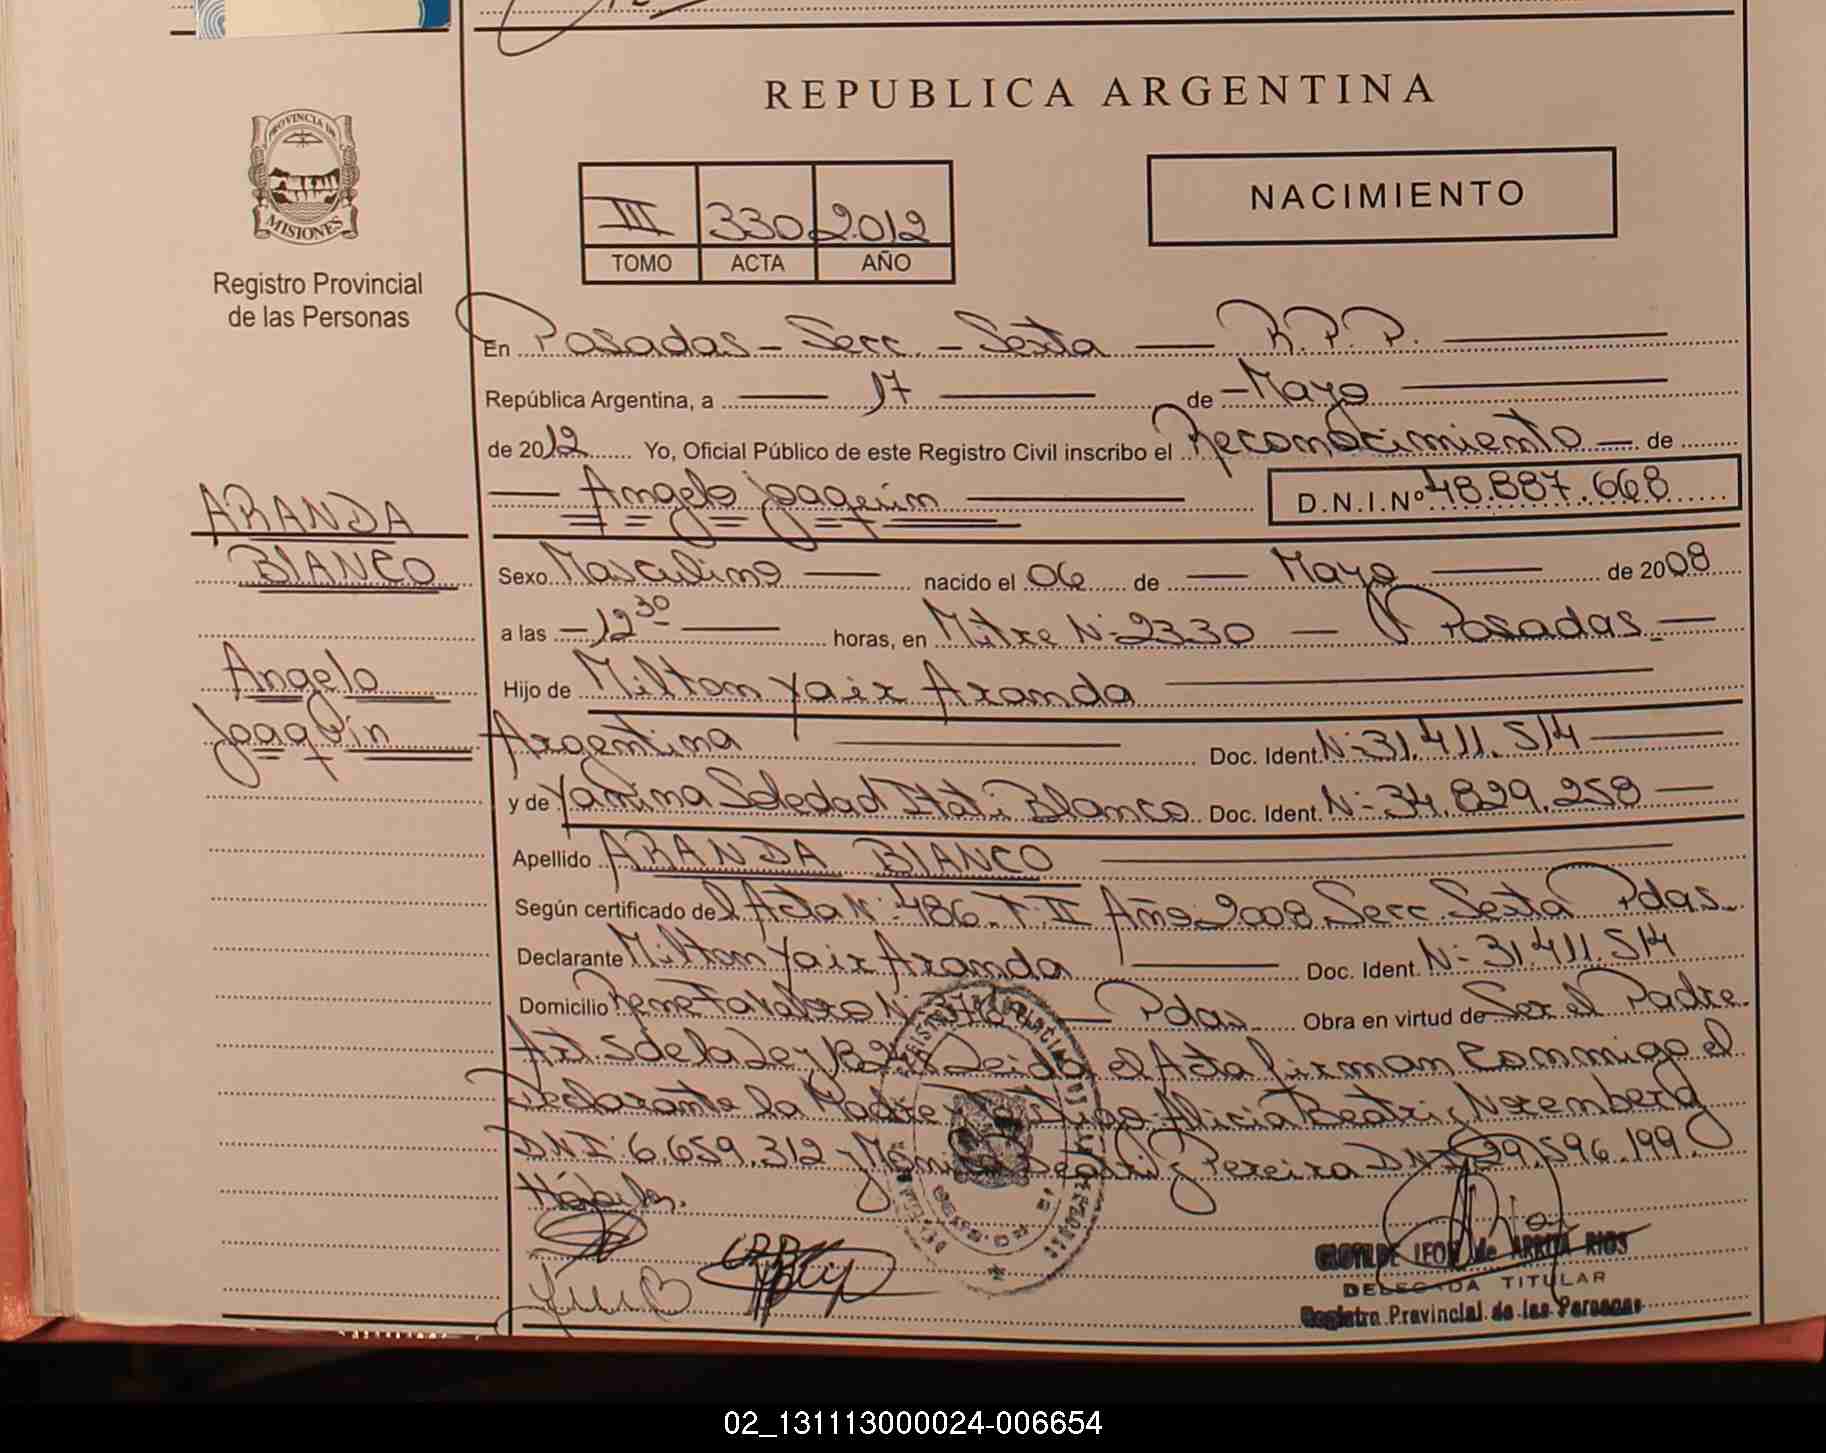 REPUBLICA ARGENTINA
PROVINCIA DE
MISIONES
Registro Provincial
de las Personas
NACIMIENTO
III 330 2.012
TOMO ACTA AÑO
En Posadas - Secc. - Sexta — R.P.P.
República Argentina, a — 17 — de — Mayo
de 2012 Yo, Oficial Público de este Registro Civil inscribo el Reconocimiento — de
— Angelo Joaquín — D.N.I.Nº 48.887.668
ARANDA
BLANCO
Angelo
Joaquín
Sexo Masculino — nacido el 06 de — Mayo — de 2008
a las — 12 30 — horas, en Mitre Nº 2330 — Posadas. —
Hijo de Milton Yair Aranda
Argentina — Doc. Ident. Nº 31.411.514
y de Yamina Soledad Itatí Blanco Doc. Ident. Nº 34.829.258 —
Apellido ARANDA BLANCO
Según certificado del Acta Nº 486. T. II Año 2008 Secc. Sexta Pdas.
Declarante Milton Yair Aranda — Doc. Ident. Nº 31.411.514
Domicilio Rene Favaloro Nº — Pdas. Obra en virtud de Ser el Padre
Art. 5 de la Ley Leida el Acta firman Conmigo el
Declarante la Madre Alicia Beatriz Noremberg
DNI: 6.659.312 y Beatriz Pereira DNI 29.596.199.
Hábiles.
CLOTILDE LEON de ARRUA RIOS
DELEGADA TITULAR
Registro Provincial de las Personas
02_131113000024-006654